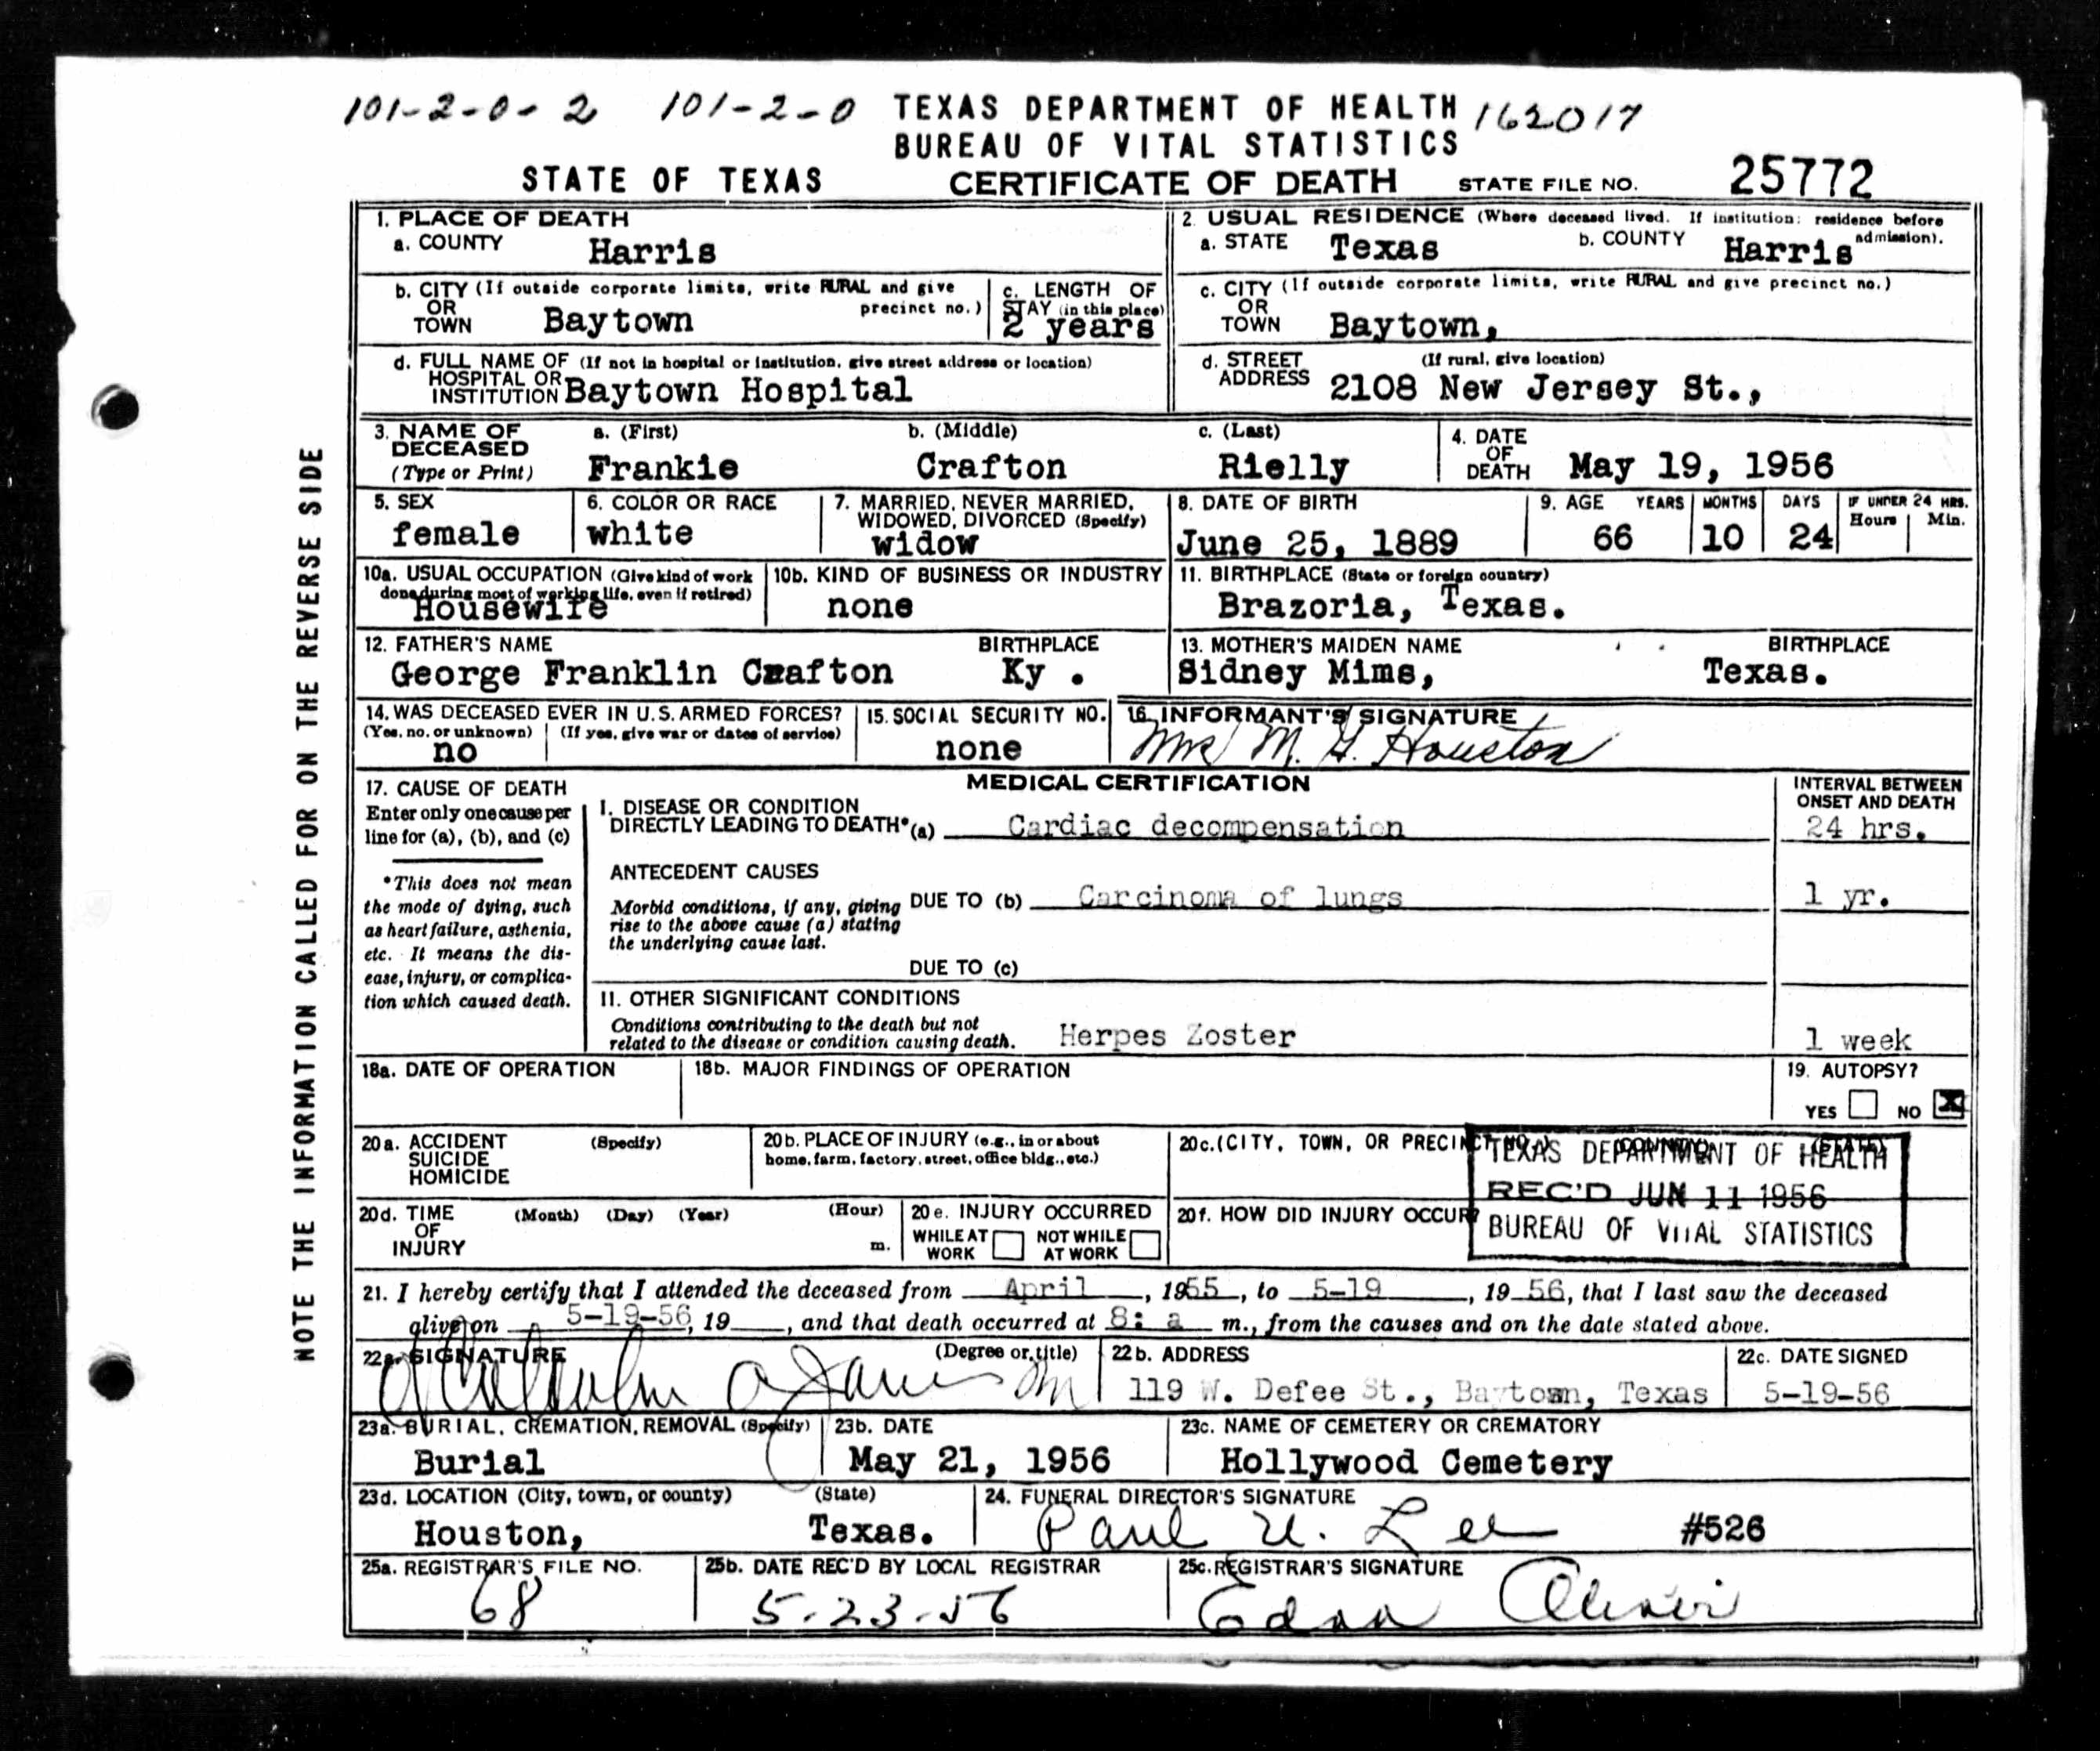 101-2-0-2 101-2-0 TEXAS DEPARTMENT OF HEALTH 162017
BUREAU OF VITAL STATISTICS
STATE OF TEXAS CERTIFICATE OF DEATH STATE FILE NO. 25772
NOTE THE INFORMATION CALLED FOR ON THE REVERSE SIDE
1. PLACE OF DEATH
a. COUNTY Harris
2. USUAL RESIDENCE (Where deceased lived. If institution: residence before admission).
a. STATE Texas b. COUNTY Harris
b. CITY (If outside corporate limits, write RURAL and give precinct no.)
OR TOWN Baytown
c. LENGTH OF STAY (in this place)
2 years
c. CITY (If outside corporate limits, write RURAL and give precinct no.)
OR TOWN Baytown,
d. FULL NAME OF (If not in hospital or institution, give street address or location)
HOSPITAL OR INSTITUTION Baytown Hospital
d. STREET ADDRESS (If rural, give location)
2108 New Jersey St.,
3. NAME OF DECEASED (Type or Print)
a. (First) b. (Middle) c. (Last)
Frankie Crafton Rielly
4. DATE OF DEATH May 19, 1956
5. SEX
female
6. COLOR OR RACE
white
7. MARRIED, NEVER MARRIED, WIDOWED, DIVORCED (Specify)
widow
8. DATE OF BIRTH
June 25, 1889
9. AGE YEARS MONTHS DAYS IF UNDER 24 HRS. Hours Min.
66 10 24
10a. USUAL OCCUPATION (Give kind of work done during most of working life, even if retired)
Housewife
10b. KIND OF BUSINESS OR INDUSTRY
none
11. BIRTHPLACE (State or foreign country)
Brazoria, Texas.
12. FATHER'S NAME BIRTHPLACE
George Franklin Crafton Ky .
13. MOTHER'S MAIDEN NAME BIRTHPLACE
Sidney Mims, Texas.
14. WAS DECEASED EVER IN U.S. ARMED FORCES?
(Yes, no, or unknown) (If yes, give war or dates of service)
no
15. SOCIAL SECURITY NO.
none
16. INFORMANT'S SIGNATURE
Mrs M. G. Houston
17. CAUSE OF DEATH
Enter only one cause per
line for (a), (b), and (c)
*This does not mean
the mode of dying, such
as heart failure, asthenia,
etc. It means the dis-
ease, injury, or complica-
tion which caused death.
MEDICAL CERTIFICATION
INTERVAL BETWEEN
ONSET AND DEATH
I. DISEASE OR CONDITION
DIRECTLY LEADING TO DEATH* (a) Cardiac decompensation 24 hrs.
ANTECEDENT CAUSES
Morbid conditions, if any, giving
rise to the above cause (a) stating
the underlying cause last.
DUE TO (b) Carcinoma of lungs 1 yr.
DUE TO (c)
II. OTHER SIGNIFICANT CONDITIONS
Conditions contributing to the death but not
related to the disease or condition causing death. Herpes Zoster 1 week
18a. DATE OF OPERATION
18b. MAJOR FINDINGS OF OPERATION
19. AUTOPSY?
YES NO X
20a. ACCIDENT (Specify)
SUICIDE
HOMICIDE
20b. PLACE OF INJURY (e.g., in or about
home, farm, factory, street, office bldg., etc.)
20c. (CITY, TOWN, OR PRECINCT NO.) (COUNTY) (STATE)
TEXAS DEPARTMENT OF HEALTH
REC'D JUN 11 1956
BUREAU OF VITAL STATISTICS
20d. TIME OF INJURY (Month) (Day) (Year) (Hour) m.
20e. INJURY OCCURRED
WHILE AT WORK NOT WHILE AT WORK
20f. HOW DID INJURY OCCUR?
21. I hereby certify that I attended the deceased from April, 1955, to 5-19, 19 56, that I last saw the deceased
alive on 5-19-56, 19 , and that death occurred at 8: a m., from the causes and on the date stated above.
22a. SIGNATURE (Degree or title)
22b. ADDRESS
119 W. Defee St., Baytown, Texas
22c. DATE SIGNED
5-19-56
23a. BURIAL, CREMATION, REMOVAL (Specify)
Burial
23b. DATE
May 21, 1956
23c. NAME OF CEMETERY OR CREMATORY
Hollywood Cemetery
23d. LOCATION (City, town, or county) (State)
Houston, Texas.
24. FUNERAL DIRECTOR'S SIGNATURE
Paul U. Lee #526
25a. REGISTRAR'S FILE NO.
68
25b. DATE REC'D BY LOCAL REGISTRAR
5-23-56
25c. REGISTRAR'S SIGNATURE
Edna Oliver